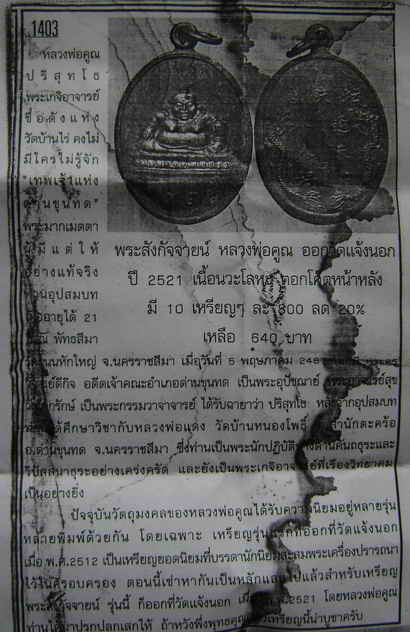 1403
หลวงพ่อคูณ
ปริสุทโธ
พระเกจิอาจารย์
ชื่อดังแห่ง
วัดบ้านไร่ คงไม่
มีใครไม่รู้จัก
"เทพเจ้าแห่ง
ด่านขุนทด"
พระมากเมตตา
ผู้มีแต่ให้
อย่างแท้จริง
ท่านอุปสมบท
อายุได้ 21
พัทธสีมา
พระสังกัจจายน์ หลวงพ่อคูณ ออกวัดแจ้งนอก
ปี 2521 เนื้อนวะโลหะ ตอกโค้ดหน้าหลัง
มี 10 เหรียญๆ ละ 800 ลด 20%
เหลือ 640 บาท
จ.นครราชสีมา เมื่อวันที่ 5 พฤษภาคม
อดีตเจ้าคณะอำเภอด่านขุนทด เป็นพระอุปัชฌาย์
เป็นพระกรรมวาจาจารย์ ได้รับฉายาว่า ปริสุทโธ หลังจากอุปสมบท
ได้ศึกษาวิชากับหลวงพ่อแดง วัดบ้านหนองโพธิ์
อ.ด่านขุนทด จ.นครราชสีมา ซึ่งท่านเป็นพระนักปฏิบัติทางด้านคันถธุระและ
วิปัสสนาธุระอย่างเคร่งครัด และยังเป็นพระเกจิอาจารย์ที่เรืองวิทยาคม
เป็นอย่างยิ่ง
ปัจจุบันวัตถุมงคลของหลวงพ่อคูณได้รับความนิยมอยู่หลายรุ่น
หลายพิมพ์ด้วยกัน โดยเฉพาะ เหรียญรุ่นแรกที่ออกที่วัดแจ้งนอก
เมื่อ พ.ศ.2512 เป็นเหรียญยอดนิยมที่บรรดานักนิยมสะสมพระเครื่องปรารถนา
ไว้ในครอบครอง ตอนนี้เช่าหากันเป็นหลักแสนไปแล้วสำหรับเหรียญ
พระสังกัจจายน์ รุ่นนี้ ก็ออกที่วัดแจ้งนอก เมื่อ พ.ศ.2521 โดยหลวงพ่อคูณ
ท่านได้มาปรกปลุกเสกให้ ถ้าหวังพึ่งพุทธคุณ เหรียญนี้น่าบูชาครับ